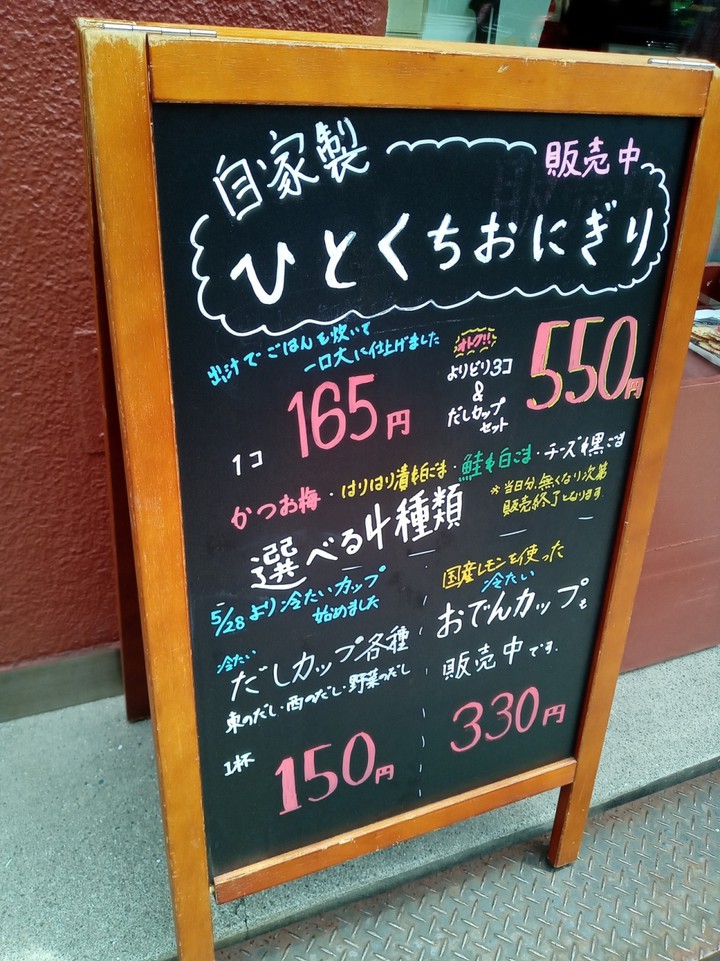 自家製
販売中
ひとくちおにぎり
出汁でごはんを炊いて
一口大に仕上げました
1コ 165円
オトク!!
よりどり3コ
&
だしカップ
セット
550円
かつお梅・はりはり漬も白ごま・鮭も白ごま・チーズも黒ごま
選べる4種類
※当日分、無くなり次第
販売終了となります
5/28より冷たいカップ
始めました
冷たい
だしカップ各種
東のだし・西のだし・野菜のだし
1杯 150円
国産レモンを使った
冷たい
おでんカップも
販売中です.
330円